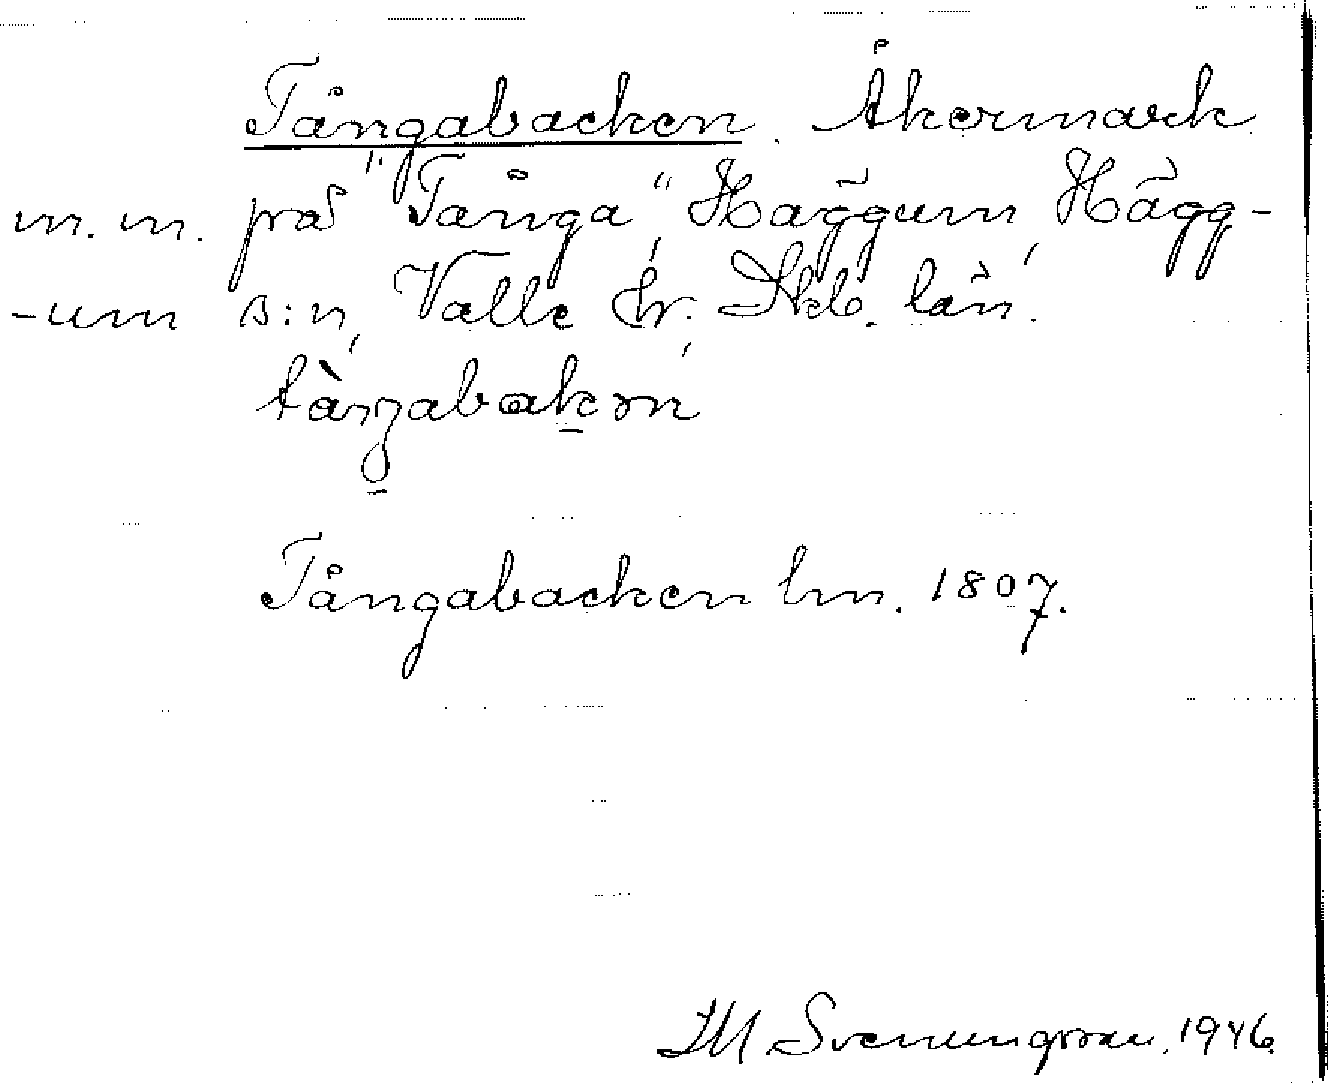 Tångabacken. Åkermark
m.m. på "Tånga", Häggum, Hägg-
-um s:n, Valle hr. Skb. län.
tàŋgabakən
Tångabacken lm. 1807.
IM Svenungsson. 1946.